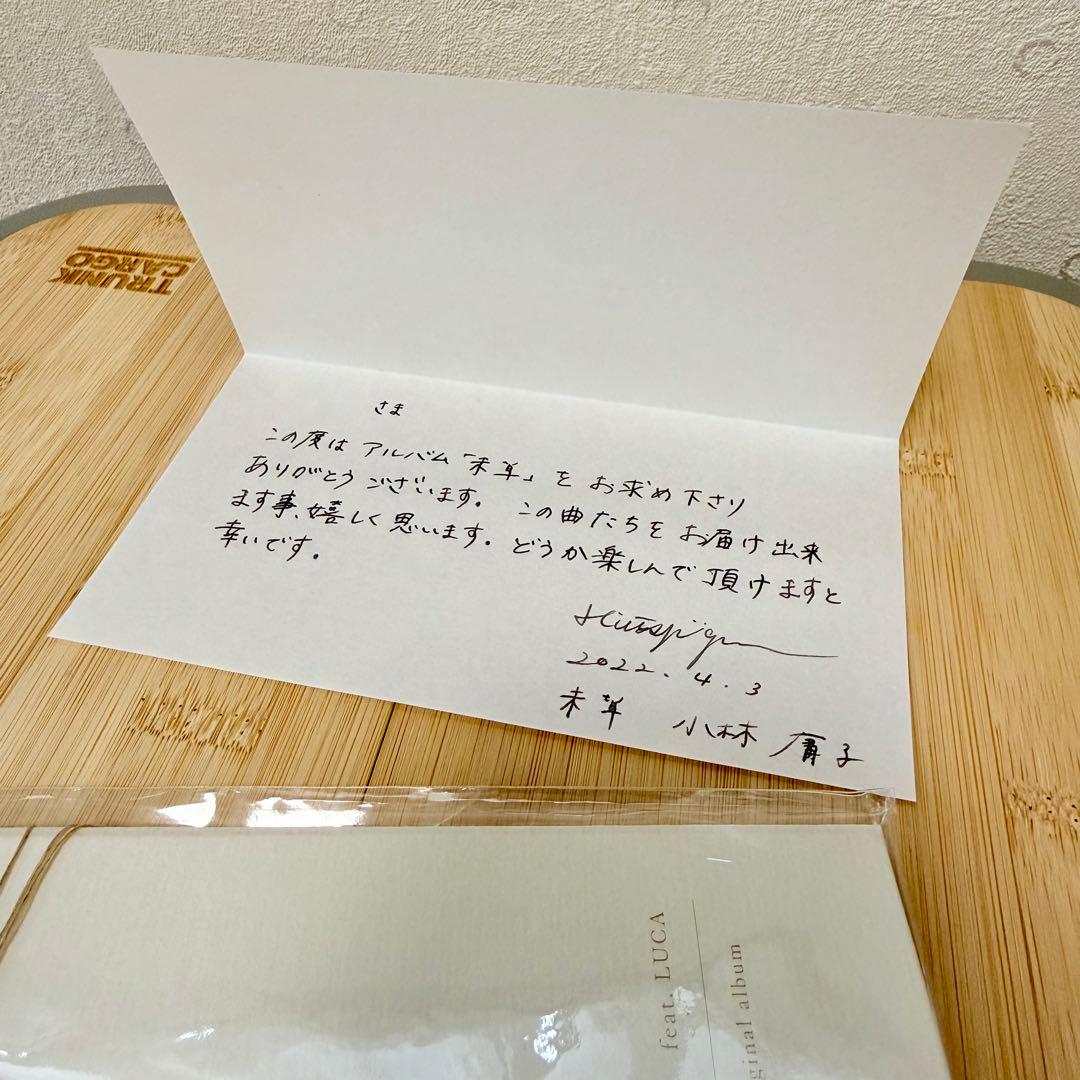 TRUNK
CARGO
さま
この度は アルバム「未草」を お求め下さり
ありがとうございます。 この曲たちをお届け出来
ます事、嬉しく思います。どうか楽しんで頂けますと
幸いです。
2022.4.3
未草 小林
feat. LUCA
ginal album